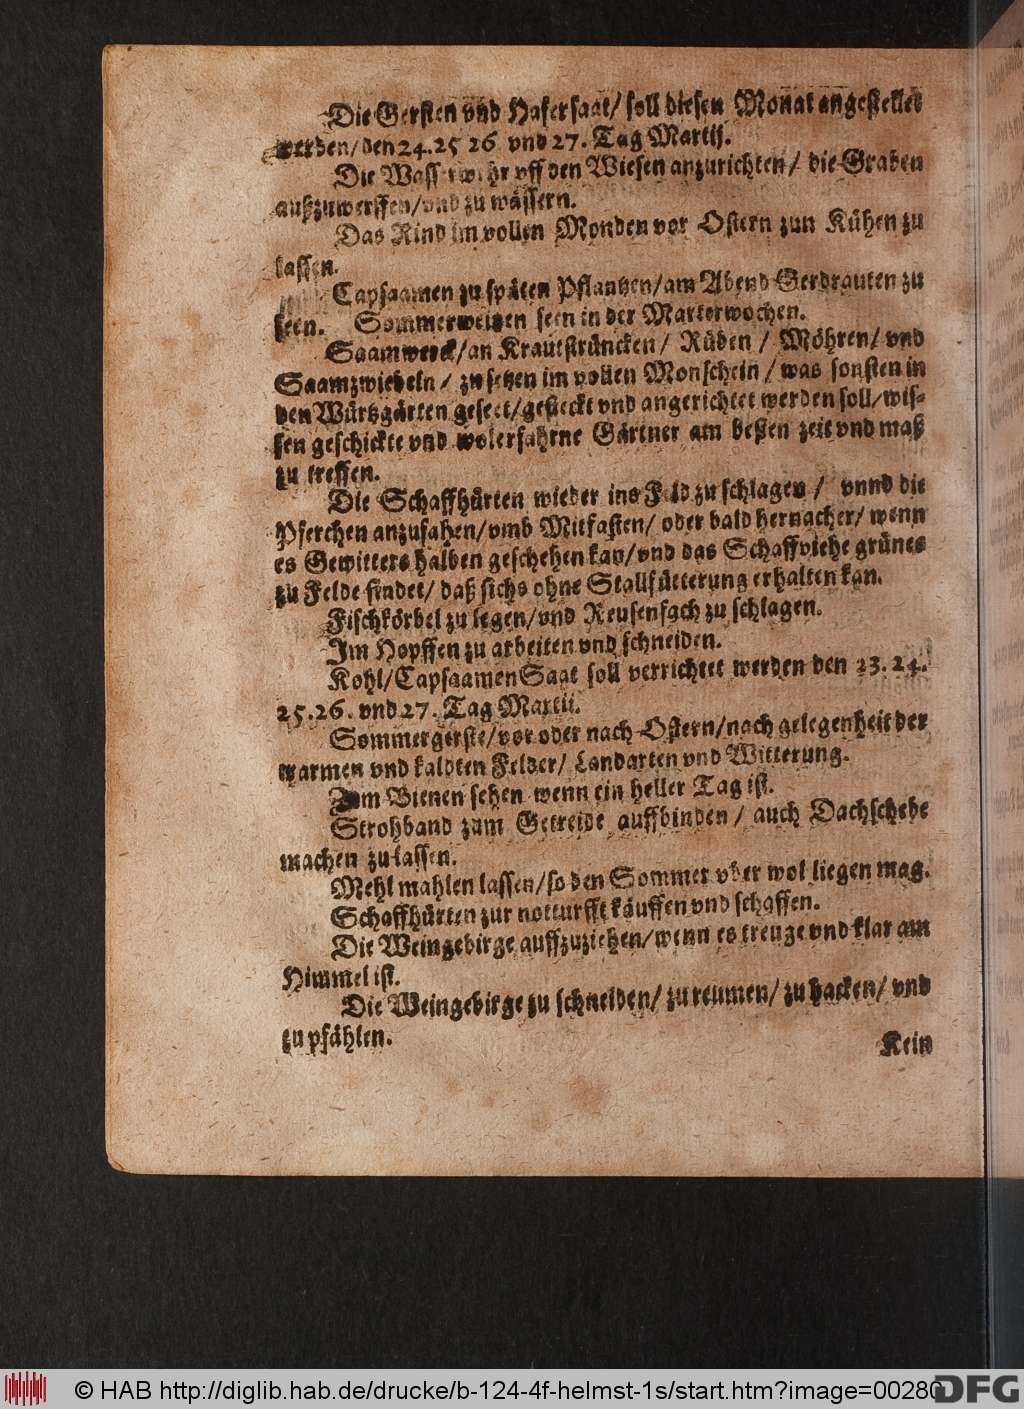 Die Gersten vnd Hafersaat/ soll diesen Monat angestellet
werden/den 24.25 26 vnd 27. Tag Martij.
Die Wasserwehr vff den Wiesen anzurichten/ die Graben
außzuwerffen/vnd zu wässern.
Das Rind im vollen Monden vor Ostern zun Kühen zu
lassen.
Capsaamen zu späten Pflantzen/am Abend Gerdrauten zu
seen. Sommerweitzen seen in der Marterwochen.
Saamwerck/an Krautstrüncken/ Rüben / Möhren/ vnd
Saamzwiebeln/ zu setzen im vollen Monschein / was sonsten in
den Würtzgärten geseet/gesteckt vnd angerichtet werden soll/wis-
sen geschickte vnd wolerfahrne Gärtner am besten zeit vnd maß
zu treffen.
Die Schaffhürten wieder ins Feld zu schlagen / vnnd die
Pferchen anzufahen/vmb Mitfasten/ oder bald hernacher/ wenn
es Gewitters halben geschehen kan/vnd das Schaffviehe grünes
zu Felde findet/ daß sichs ohne Stallfütterung erhalten kan.
Fischkörbel zu legen/vnd Reusenfach zu schlagen.
Im Hopffen zu arbeiten vnd schneiden.
Kohl/CapsaamenSaat soll verrichtet werden den 23.24.
25.26. vnd 27. Tag Martii.
Sommergerste/vor oder nach Ostern/nach gelegenheit der
warmen vnd kaldten Felder/ Landarten vnd Witterung.
Zum Bienen sehen wenn ein heller Tag ist.
Strohband zum Getreide auffbinden / auch Dachschebe
machen zu lassen.
Mehl mahlen lassen/so den Sommer vber wol liegen mag.
Schaffhürten zur notturfft käuffen vnd schaffen.
Die Weingebirge auffzuziehen/wenn es treuge vnd klar am
Himmel ist.
Die Weingebirge zu schneiden/ zu reumen/ zu hacken/ vnd
zu pfählen.
Kein
© HAB http://diglib.hab.de/drucke/b-124-4f-helmst-1s/start.htm?image=00280
DFG